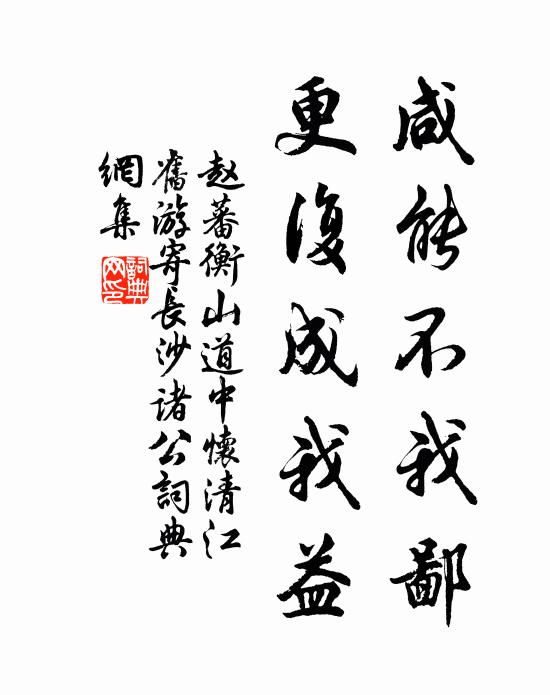 咸能不我鄙
更復成我益
赵蕃衡山道中懷清江
舊游寄長沙诸公詞典
網集
詞典網印